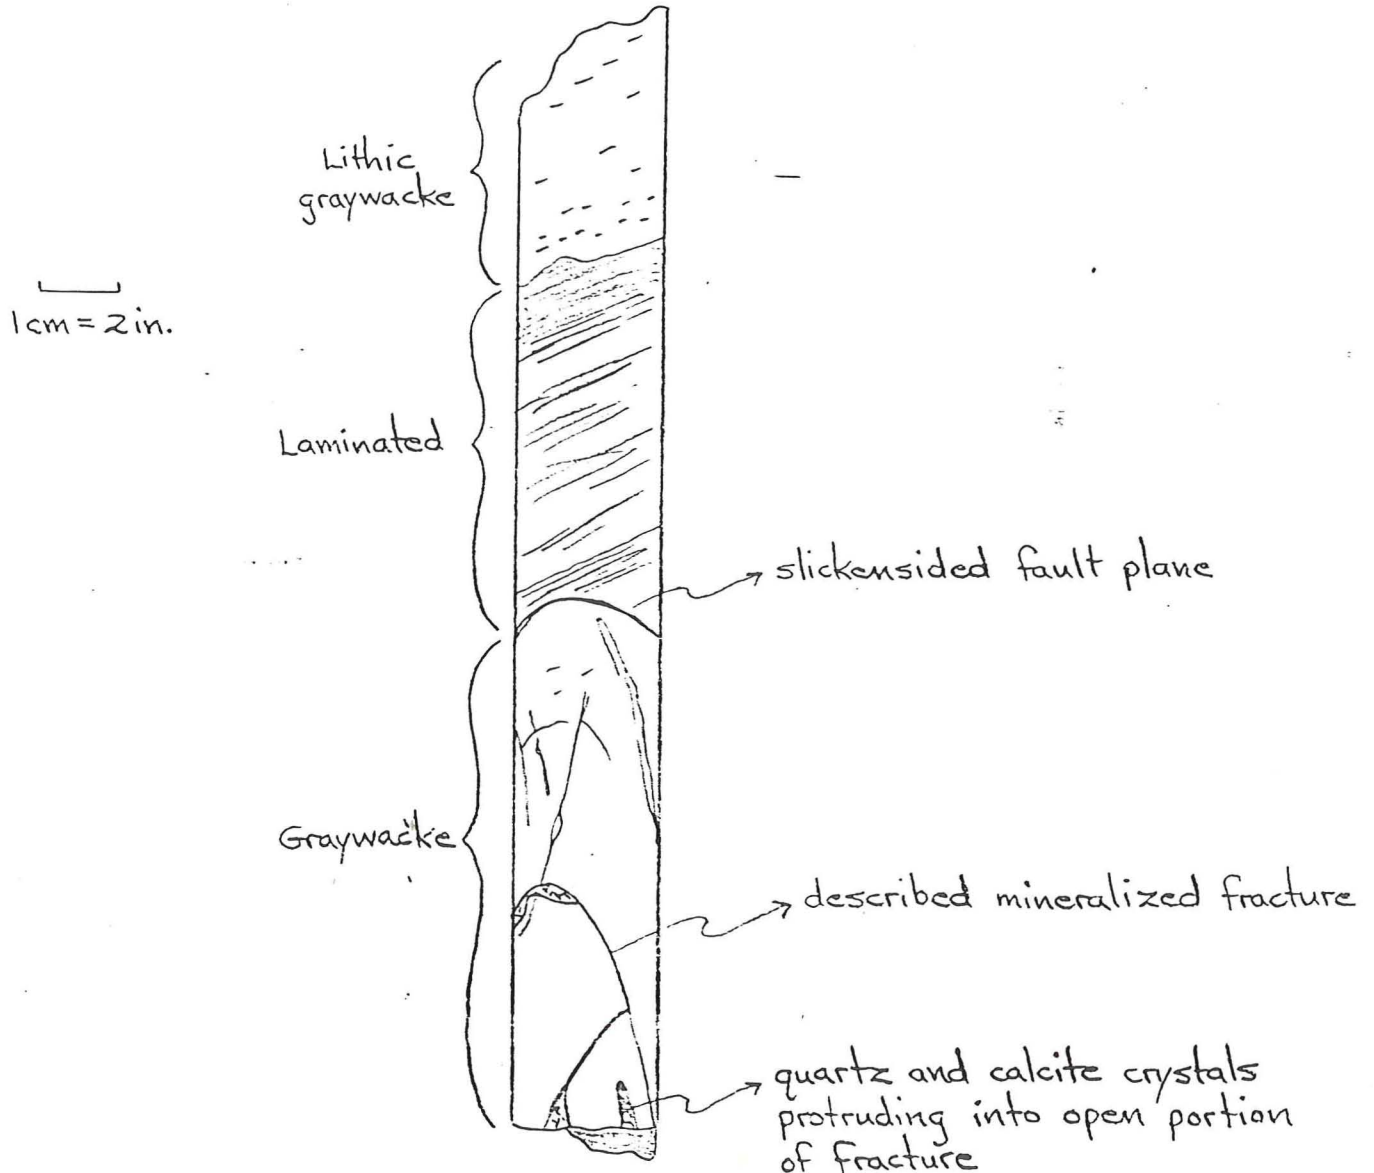 Lithic
graywacke
1cm = 2in.
Laminated
slickensided fault plane
Graywacke
described mineralized fracture
quartz and calcite crystals
protruding into open portion
of fracture